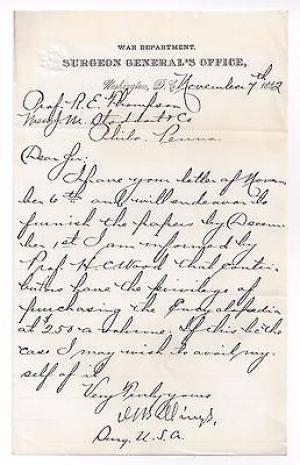 WAR DEPARTMENT,
SURGEON GENERAL'S OFFICE,
Washington, D.C. November 7th 1882
Prof. R. E. Thompson
M. Stoddart & Co
Phila. Penna.
Dear Sir:
I have your letter of Novem
ber 6th and will endeavor to
furnish the papers by Decem
ber 1st. I am informed by
Prof. H. C. Wood that contri
butors have the privilege of
purchasing the Encyclopedia
at 2.50 a volume. If this be the
case I may wish to avail my
self of it
Very truly yours
Surg. U.S.A.